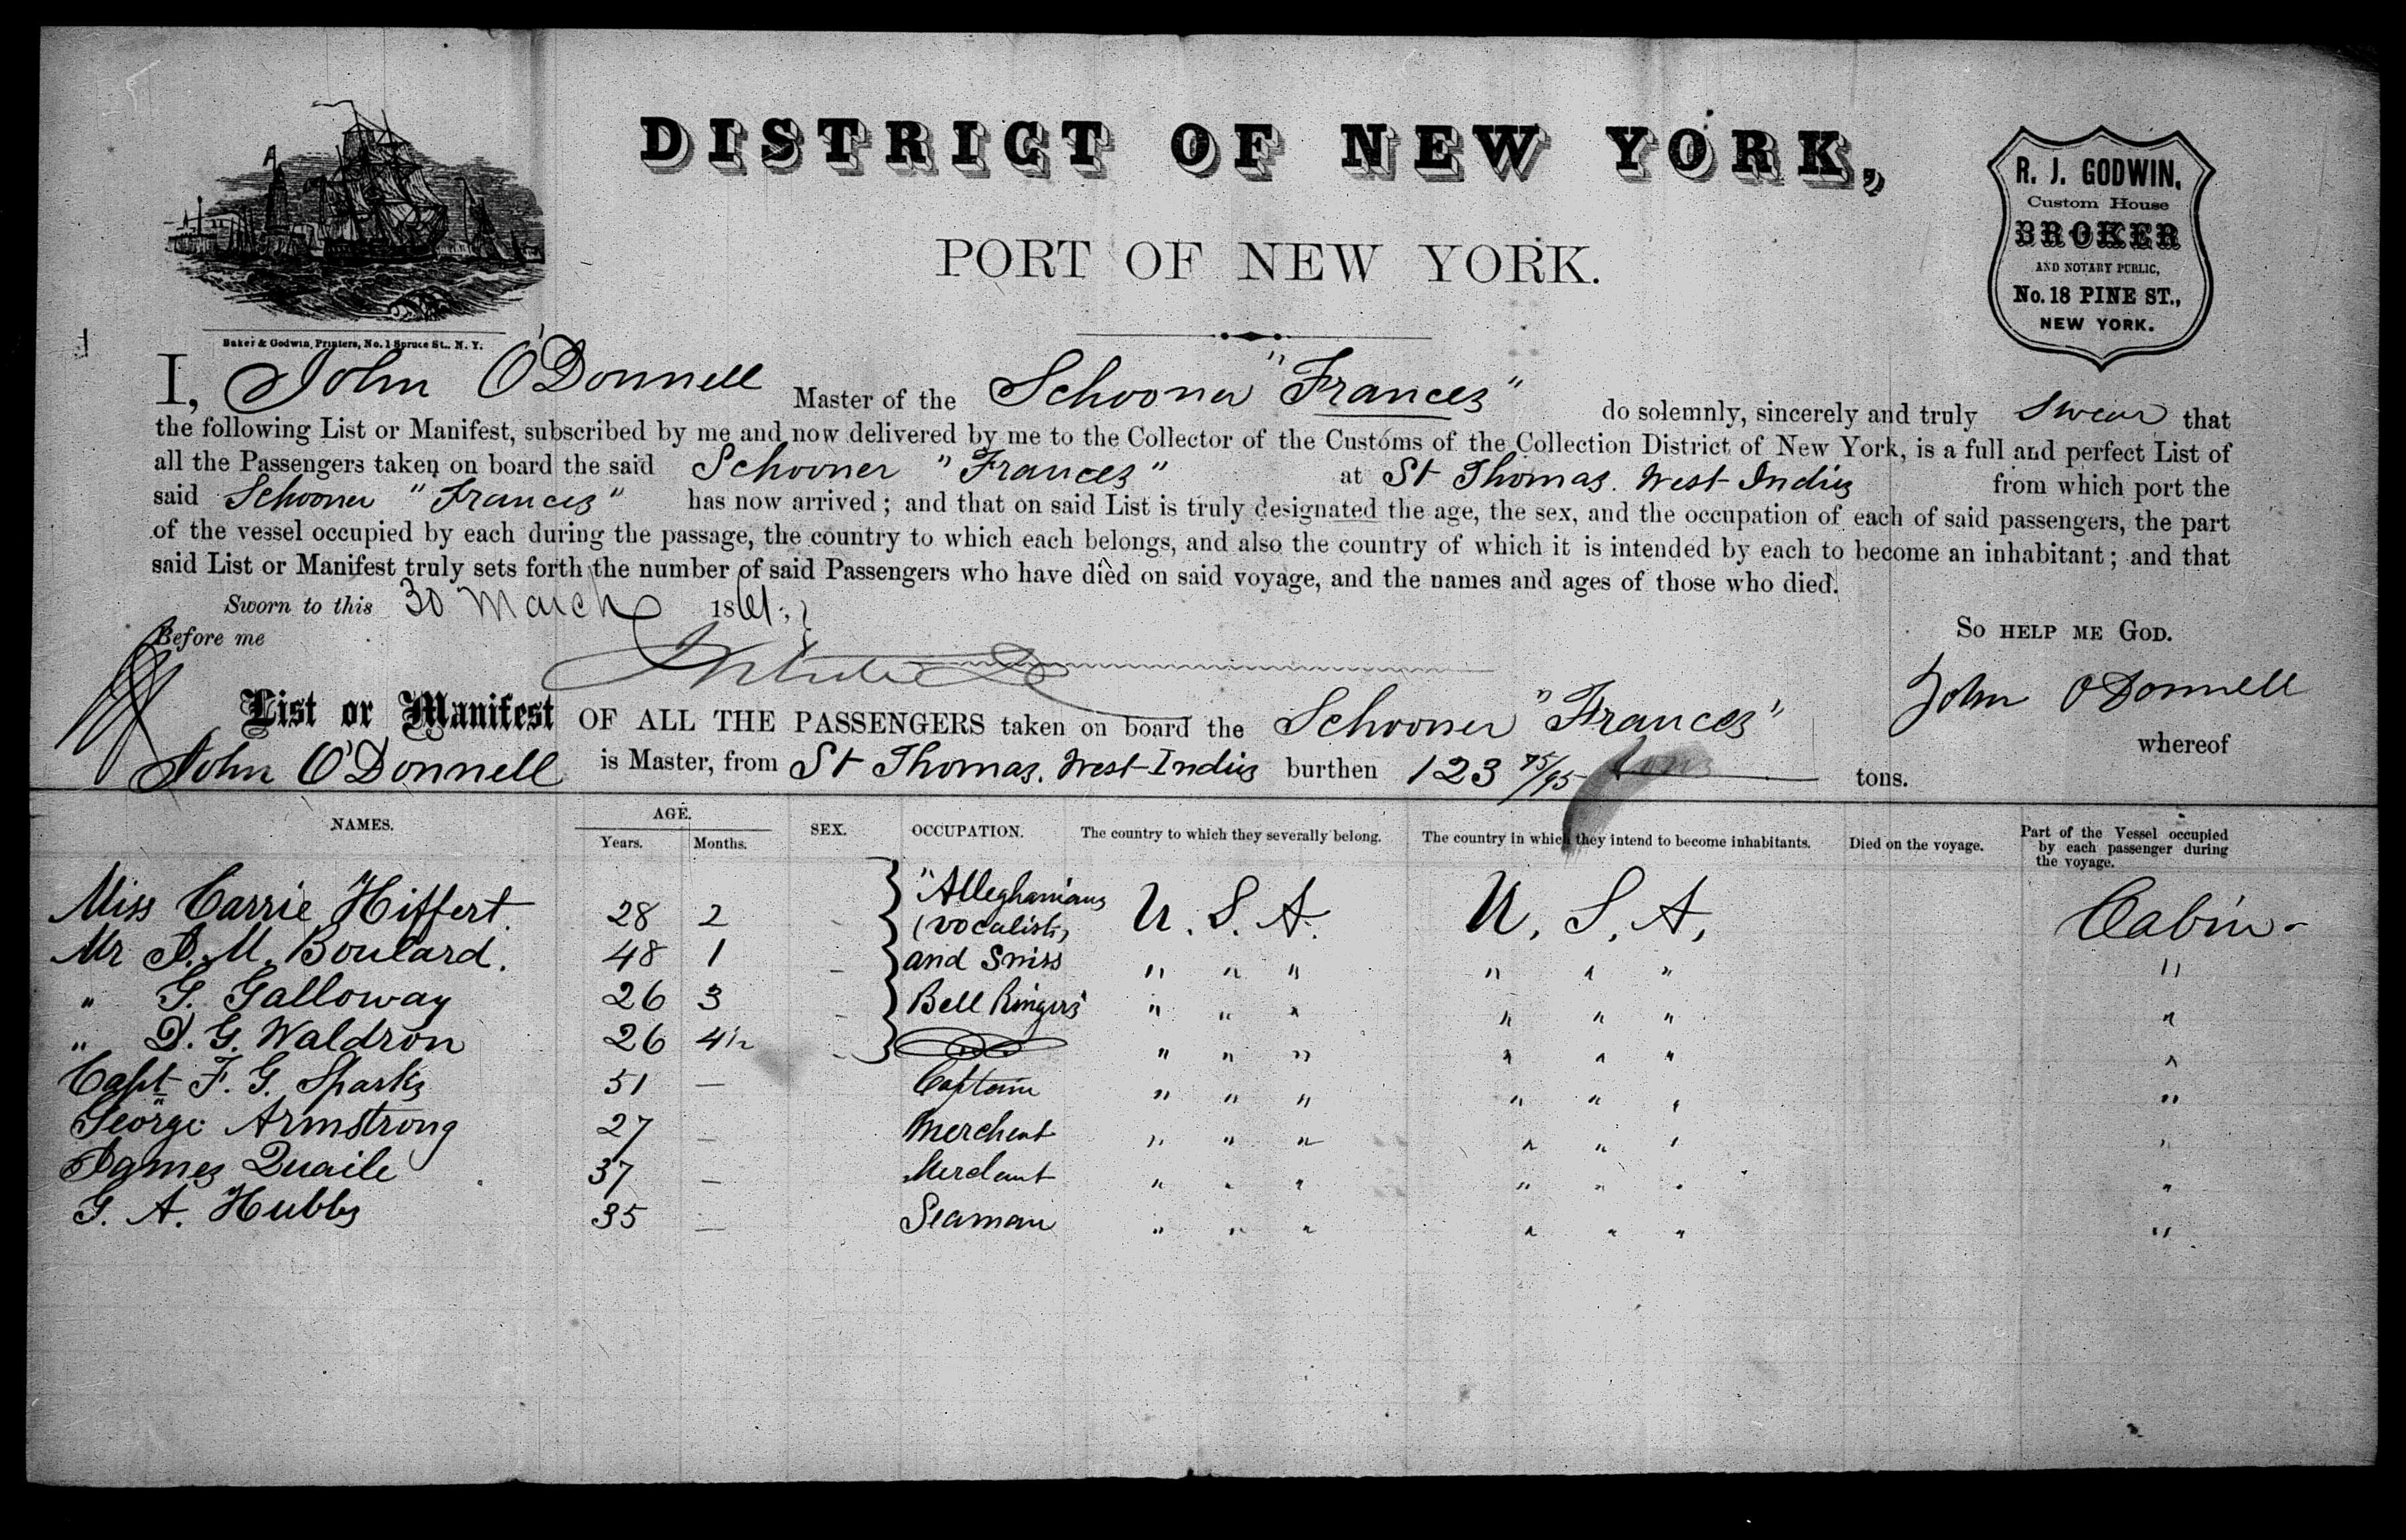 DISTRICT OF NEW YORK,
PORT OF NEW YORK.
R. J. GODWIN,
Custom House
BROKER
AND NOTARY PUBLIC,
No. 18 PINE ST.,
NEW YORK.
Baker & Godwin, Printers, No. 1 Spruce St., N. Y.
I, John O'Donnell Master of the Schooner "Frances" do solemnly, sincerely and truly swear that
the following List or Manifest, subscribed by me and now delivered by me to the Collector of the Customs of the Collection District of New York, is a full and perfect List of
all the Passengers taken on board the said Schooner "Frances" at St Thomas. West Indies from which port the
said Schooner "Frances" has now arrived; and that on said List is truly designated the age, the sex, and the occupation of each of said passengers, the part
of the vessel occupied by each during the passage, the country to which each belongs, and also the country of which it is intended by each to become an inhabitant; and that
said List or Manifest truly sets forth the number of said Passengers who have died on said voyage, and the names and ages of those who died.
Sworn to this 30 March 1861.
Before me
SO HELP ME GOD.
John O'Donnell
List or Manifest OF ALL THE PASSENGERS taken on board the Schooner "Frances" whereof
John O'Donnell is Master, from St Thomas. West Indies burthen 123 75/95 tons tons.
NAMES. AGE. SEX. OCCUPATION. The country to which they severally belong. The country in which they intend to become inhabitants. Died on the voyage. Part of the Vessel occupied by each passenger during the voyage.
Years. Months.
Miss Carrie Hiffert. 28 2 - "Alleghanians (vocalists) U. S. A. U. S. A. Cabin -
Mr J. M. Boulard. 48 1 - and Swiss " " " " " " "
" G. Galloway 26 3 - Bell Ringers" " " " " " " "
" D. G. Waldron 26 4½ - " " " " " " "
Capt F. G. Sparks 51 — Captain " " " " " " "
George Armstrong 27 — Merchant " " " " " " "
James Quaile 37 — Merchant " " " " " " "
G. A. Hubbs 35 — Seaman " " " " " " "